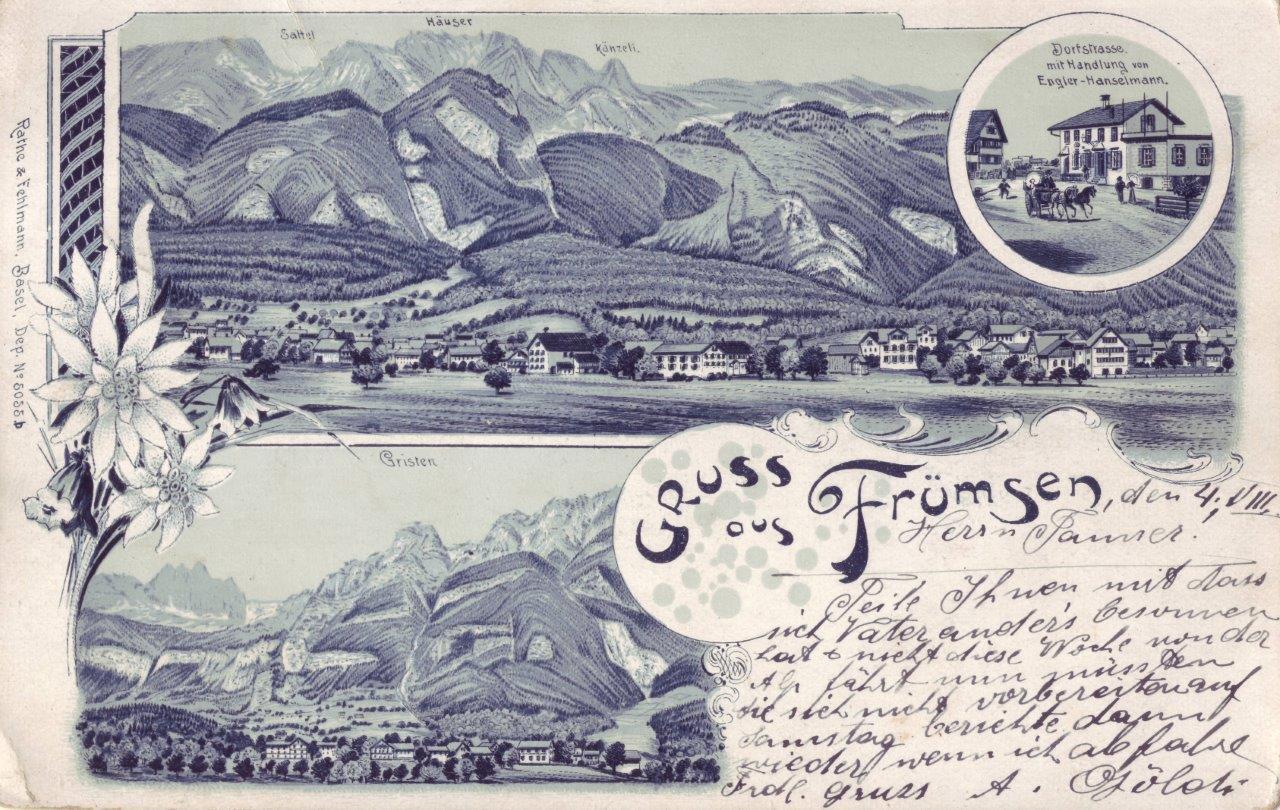 Häuser
Sattel
Känzeli.
Dorfstrasse
mit Handlung von
Engler-Hanselmann.
Rathe & Fehlmann, Basel, Dep. No 5055 b
Cristen
Gruss
aus Frümsen, den 4. VIII.
Herrn
Teile Ihnen mit dass
sich Vater anders besonnen
hat & nicht diese Woche von der
Alp fährt nun müssten
sie sich nicht vorbereiten auf
Samstag berichte dann
wieder wenn ich abfahre
Frdl. gruss A. Göldi